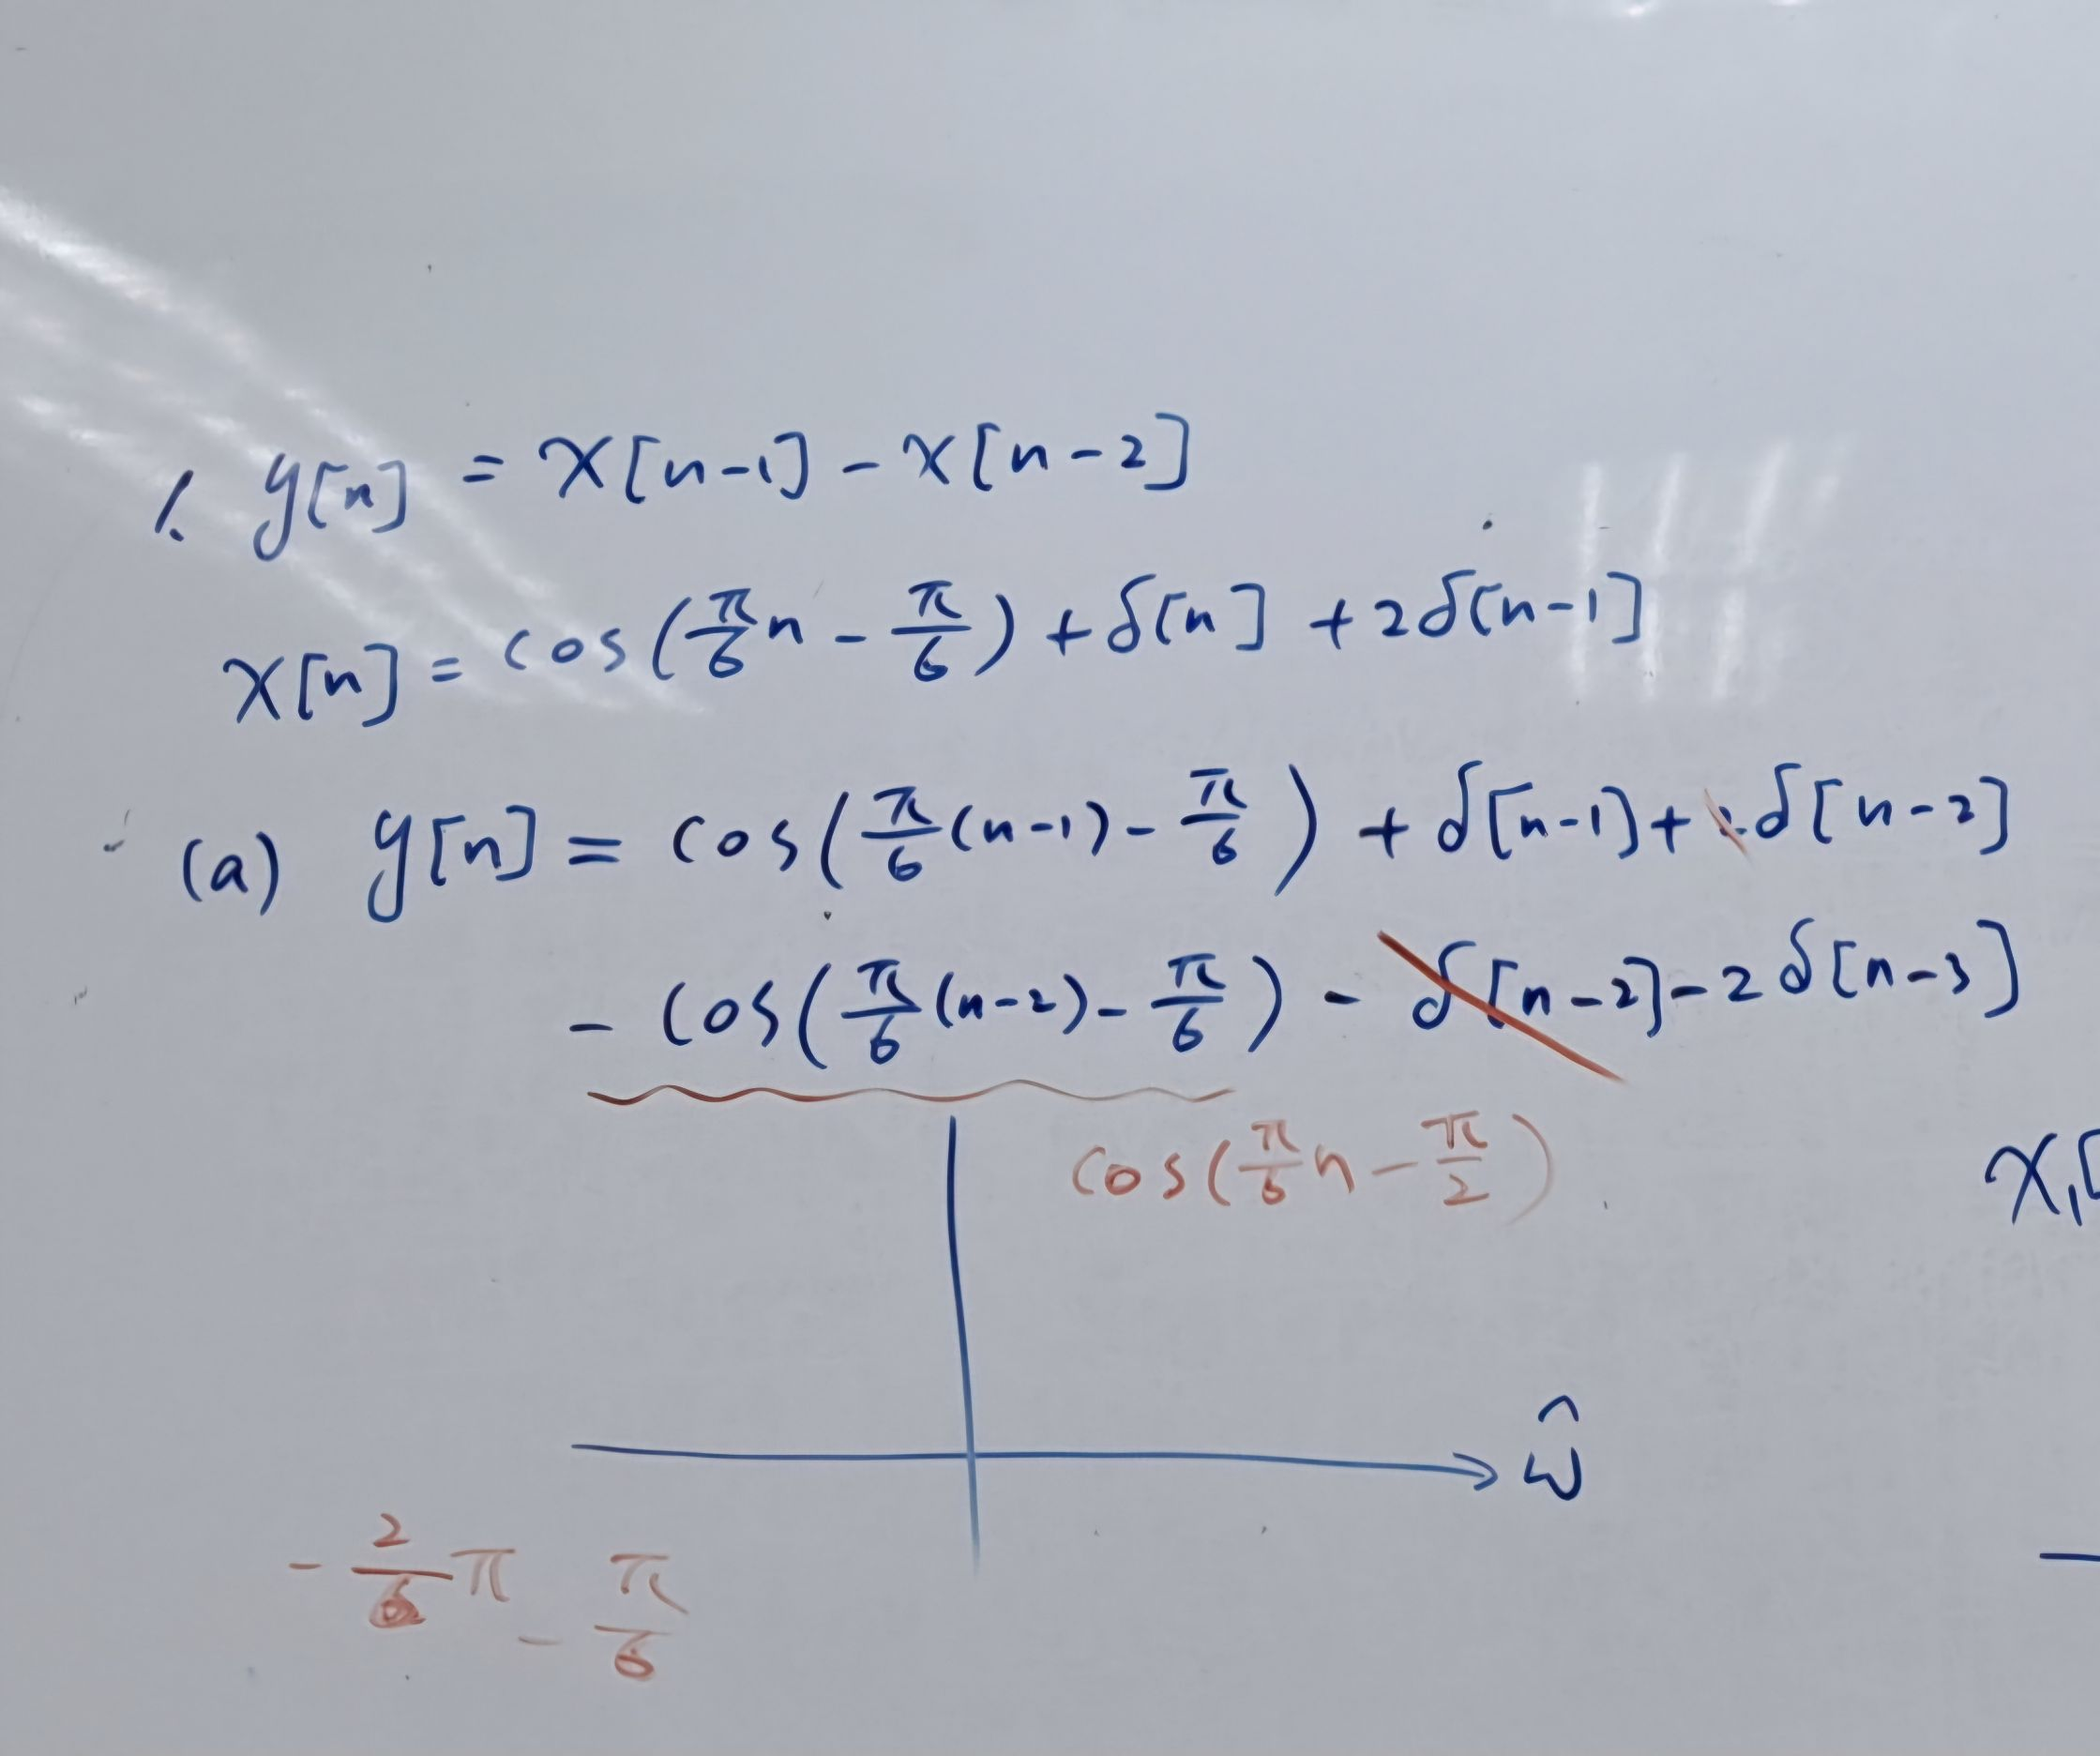 1. y[n] = x[n-1] - x[n-2]
x[n] = cos(π/6 n - π/6) + δ[n] + 2δ[n-1]
(a) y[n] = cos(π/6 (n-1) - π/6) + δ[n-1] + δ[n-2]
- cos(π/6 (n-2) - π/6) - δ[n-2] - 2δ[n-3]
cos(π/6 n - π/2)
x₁[
ω̂
- 2/6 π - π/6